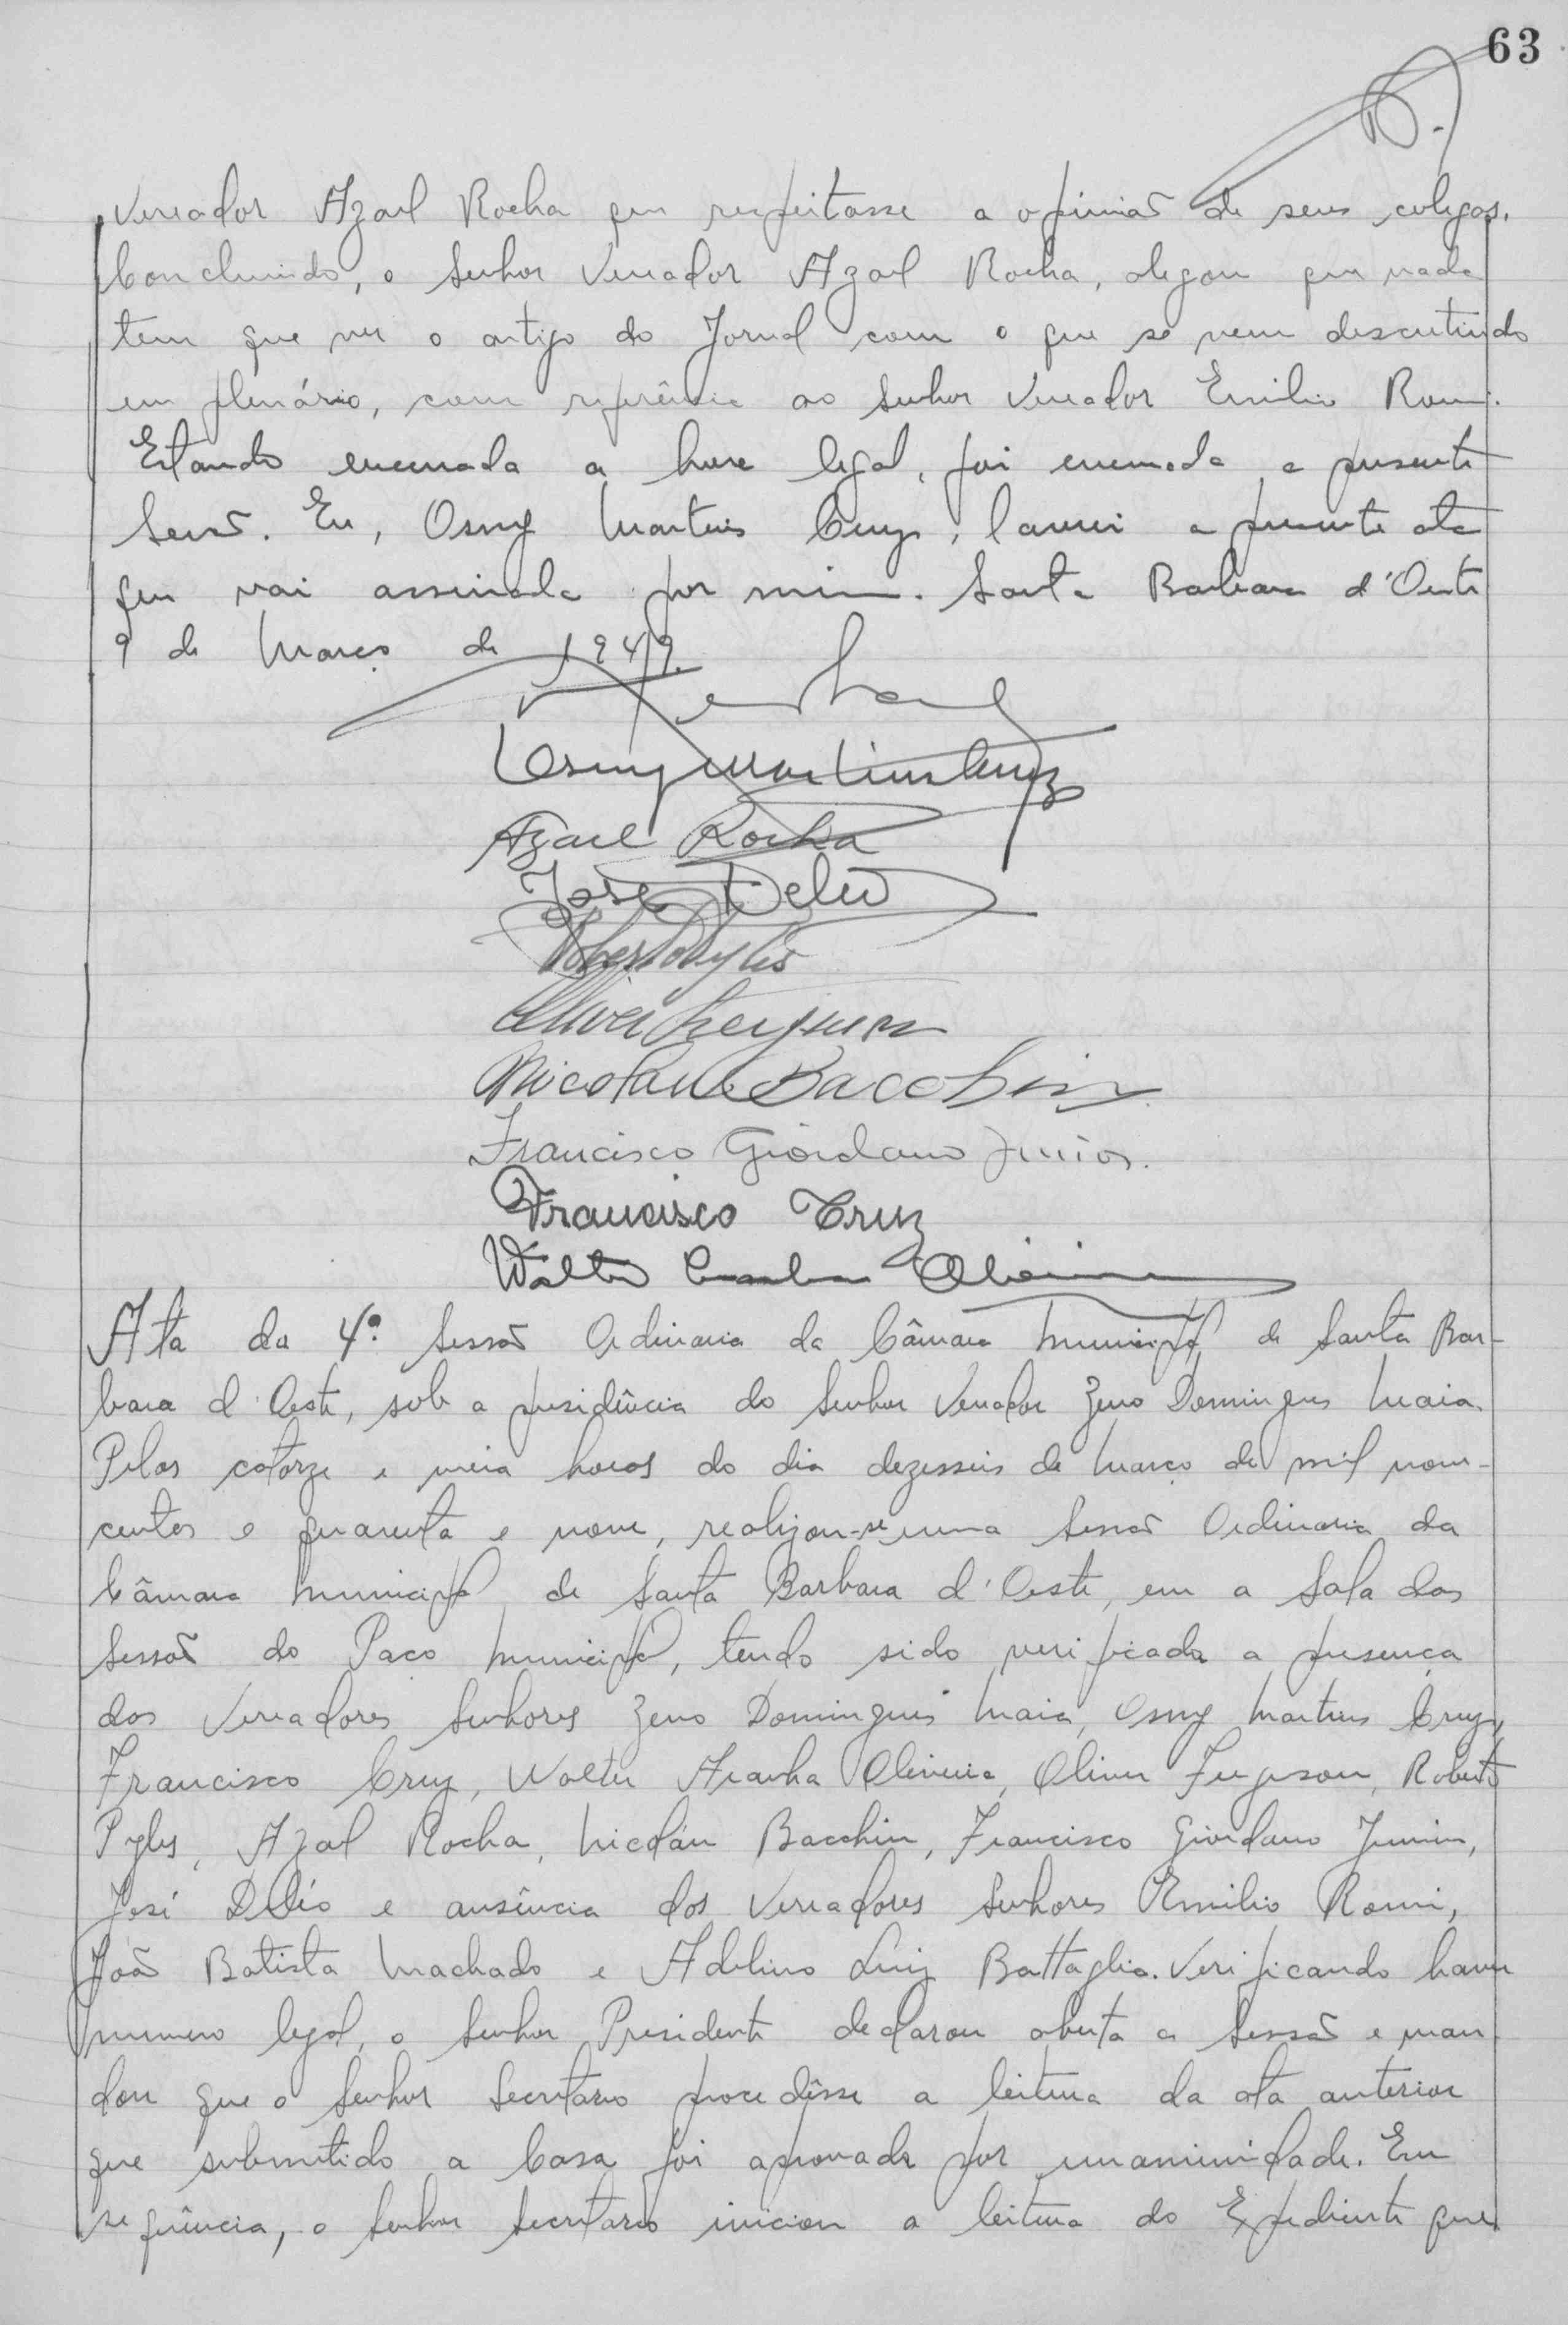 63
Vereador Azael Rocha que respeitasse a opinião de seus colegas.
Concluindo, o Senhor Vereador Azael Rocha, alegou que nada
tem que ver o artigo do Jornal com o que se vem descutindo
em plenário, com referência ao Senhor Vereador Emilio Romi.
Estando encerrada a hora legal, foi encerrada a presente
Sessão. Eu, Osny Martins Cruz, lavrei a presente ata
que vai assinada por mim. Santa Barbara d'Oeste
9 de Março de 1949.
Osny Martins Cruz
Azael Rocha
José Deléo
Roberto Pyles
Oliver Ferguson
Nicolau Bacchin
Francisco Giordano Junior.
Francisco Cruz
Walter Aranha Oliveira
Ata da 4ª. Sessão Ordinaria da Câmara Municipal de Santa Bar-
bara d'Oeste, sob a presidência do Senhor Vereador Zeno Domingues Maia.
Pelas catorze e meia horas do dia dezesseis de Março de mil nove-
centos e quarenta e nove, realizou-se uma Sessão Ordinaria da
Câmara Municipal de Santa Barbara d'Oeste, em a Sala das
Sessão do Paço Municipal, tendo sido verificada a presença
dos Vereadores Senhores Zeno Domingues Maia, Osny Martins Cruz,
Francisco Cruz, Walter Aranha Oliveira, Oliver Ferguson, Roberto
Pyles, Azael Rocha, Nicoláu Bacchin, Francisco Giordano Junior,
José Deléo e ausência dos Vereadores Senhores Emilio Romi,
João Batista Machado e Adelino Luiz Battaglia. Verificando haver
numero legal, o Senhor Presidente declarou aberta a Sessão e man-
dou que o Senhor Secretário procedêsse a leitura da ata anterior
que submetido a Casa foi aprovada por unanimidade. Em
sequência, o Senhor Secretário iniciou a leitura do Expediente que